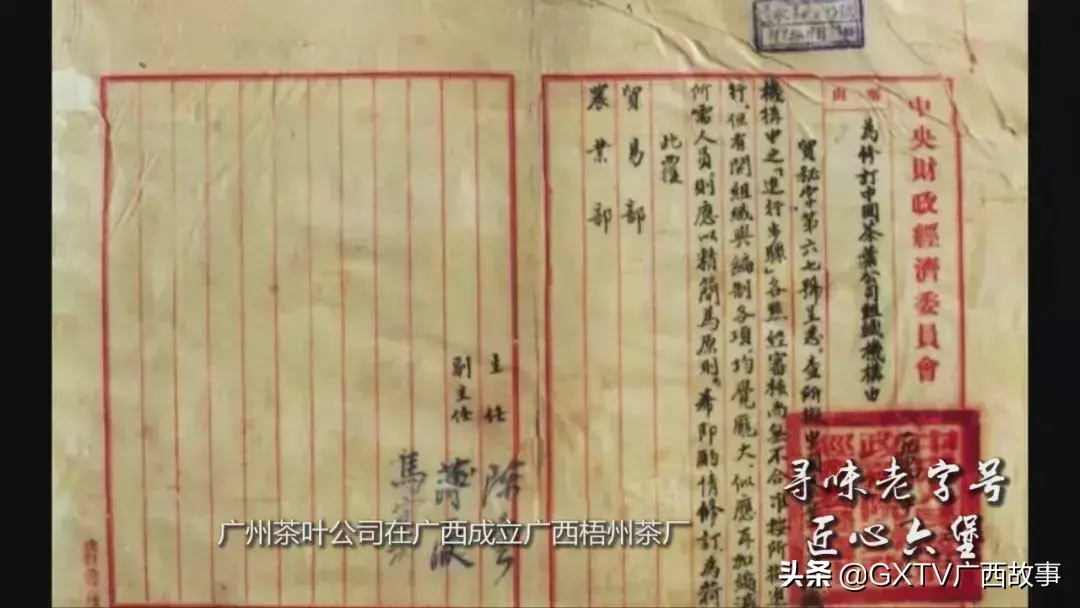 中央財政經濟委員會
事由
為修訂中國茶葉公司組織機構由
貿秘字第六七號呈悉。查所擬中國
機構中之「進行步驟」各點經審核尚無不合准按所擬進
行。但有関組織與編制各項，均覺龐大，似應再加緊縮
所需人員則應以精簡為原則。希即酌情修訂為荷
此覆
貿易部
農業部
主任
副主任
陳雲
薄一波
馬寅初
寻味老字号
匠心六堡
广州茶叶公司在广西成立广西梧州茶厂
头条 @GXTV广西故事